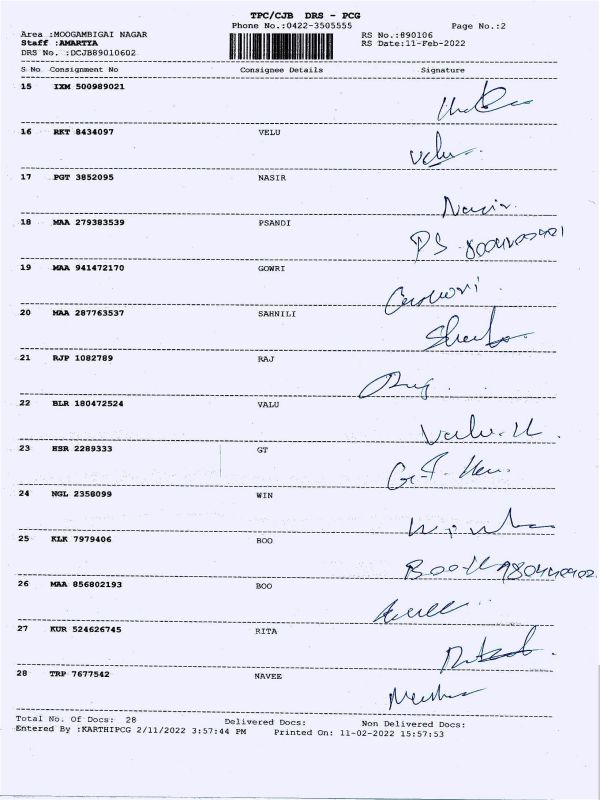 TPC/CJB DRS - PCG
Phone No.:0422-3505555 Page No.:2
Area :MOOGAMBIGAI NAGAR RS No.:890106
Staff :AMARTYA RS Date:11-Feb-2022
DRS No. :DCJB89010602
S No. Consignment No Consignee Details Signature
15 IXM 500989021
16 RKT 8434097 VELU
Velu
17 PGT 3852095 NASIR
Nasir
18 MAA 279383539 PSANDI
PS
19 MAA 941472170 GOWRI
Gowri
20 MAA 287763537 SAHNILI
21 RJP 1082789 RAJ
Raj
22 BLR 180472524 VALU
23 HSR 2289333 GT
24 NGL 2358099 WIN
25 KLK 7979406 BOO
26 MAA 856802193 BOO
27 KUR 524626745 RITA
28 TRP 7677542 NAVEE
Total No. Of Docs: 28 Delivered Docs: Non Delivered Docs:
Entered By :KARTHIPCG 2/11/2022 3:57:44 PM Printed On: 11-02-2022 15:57:53